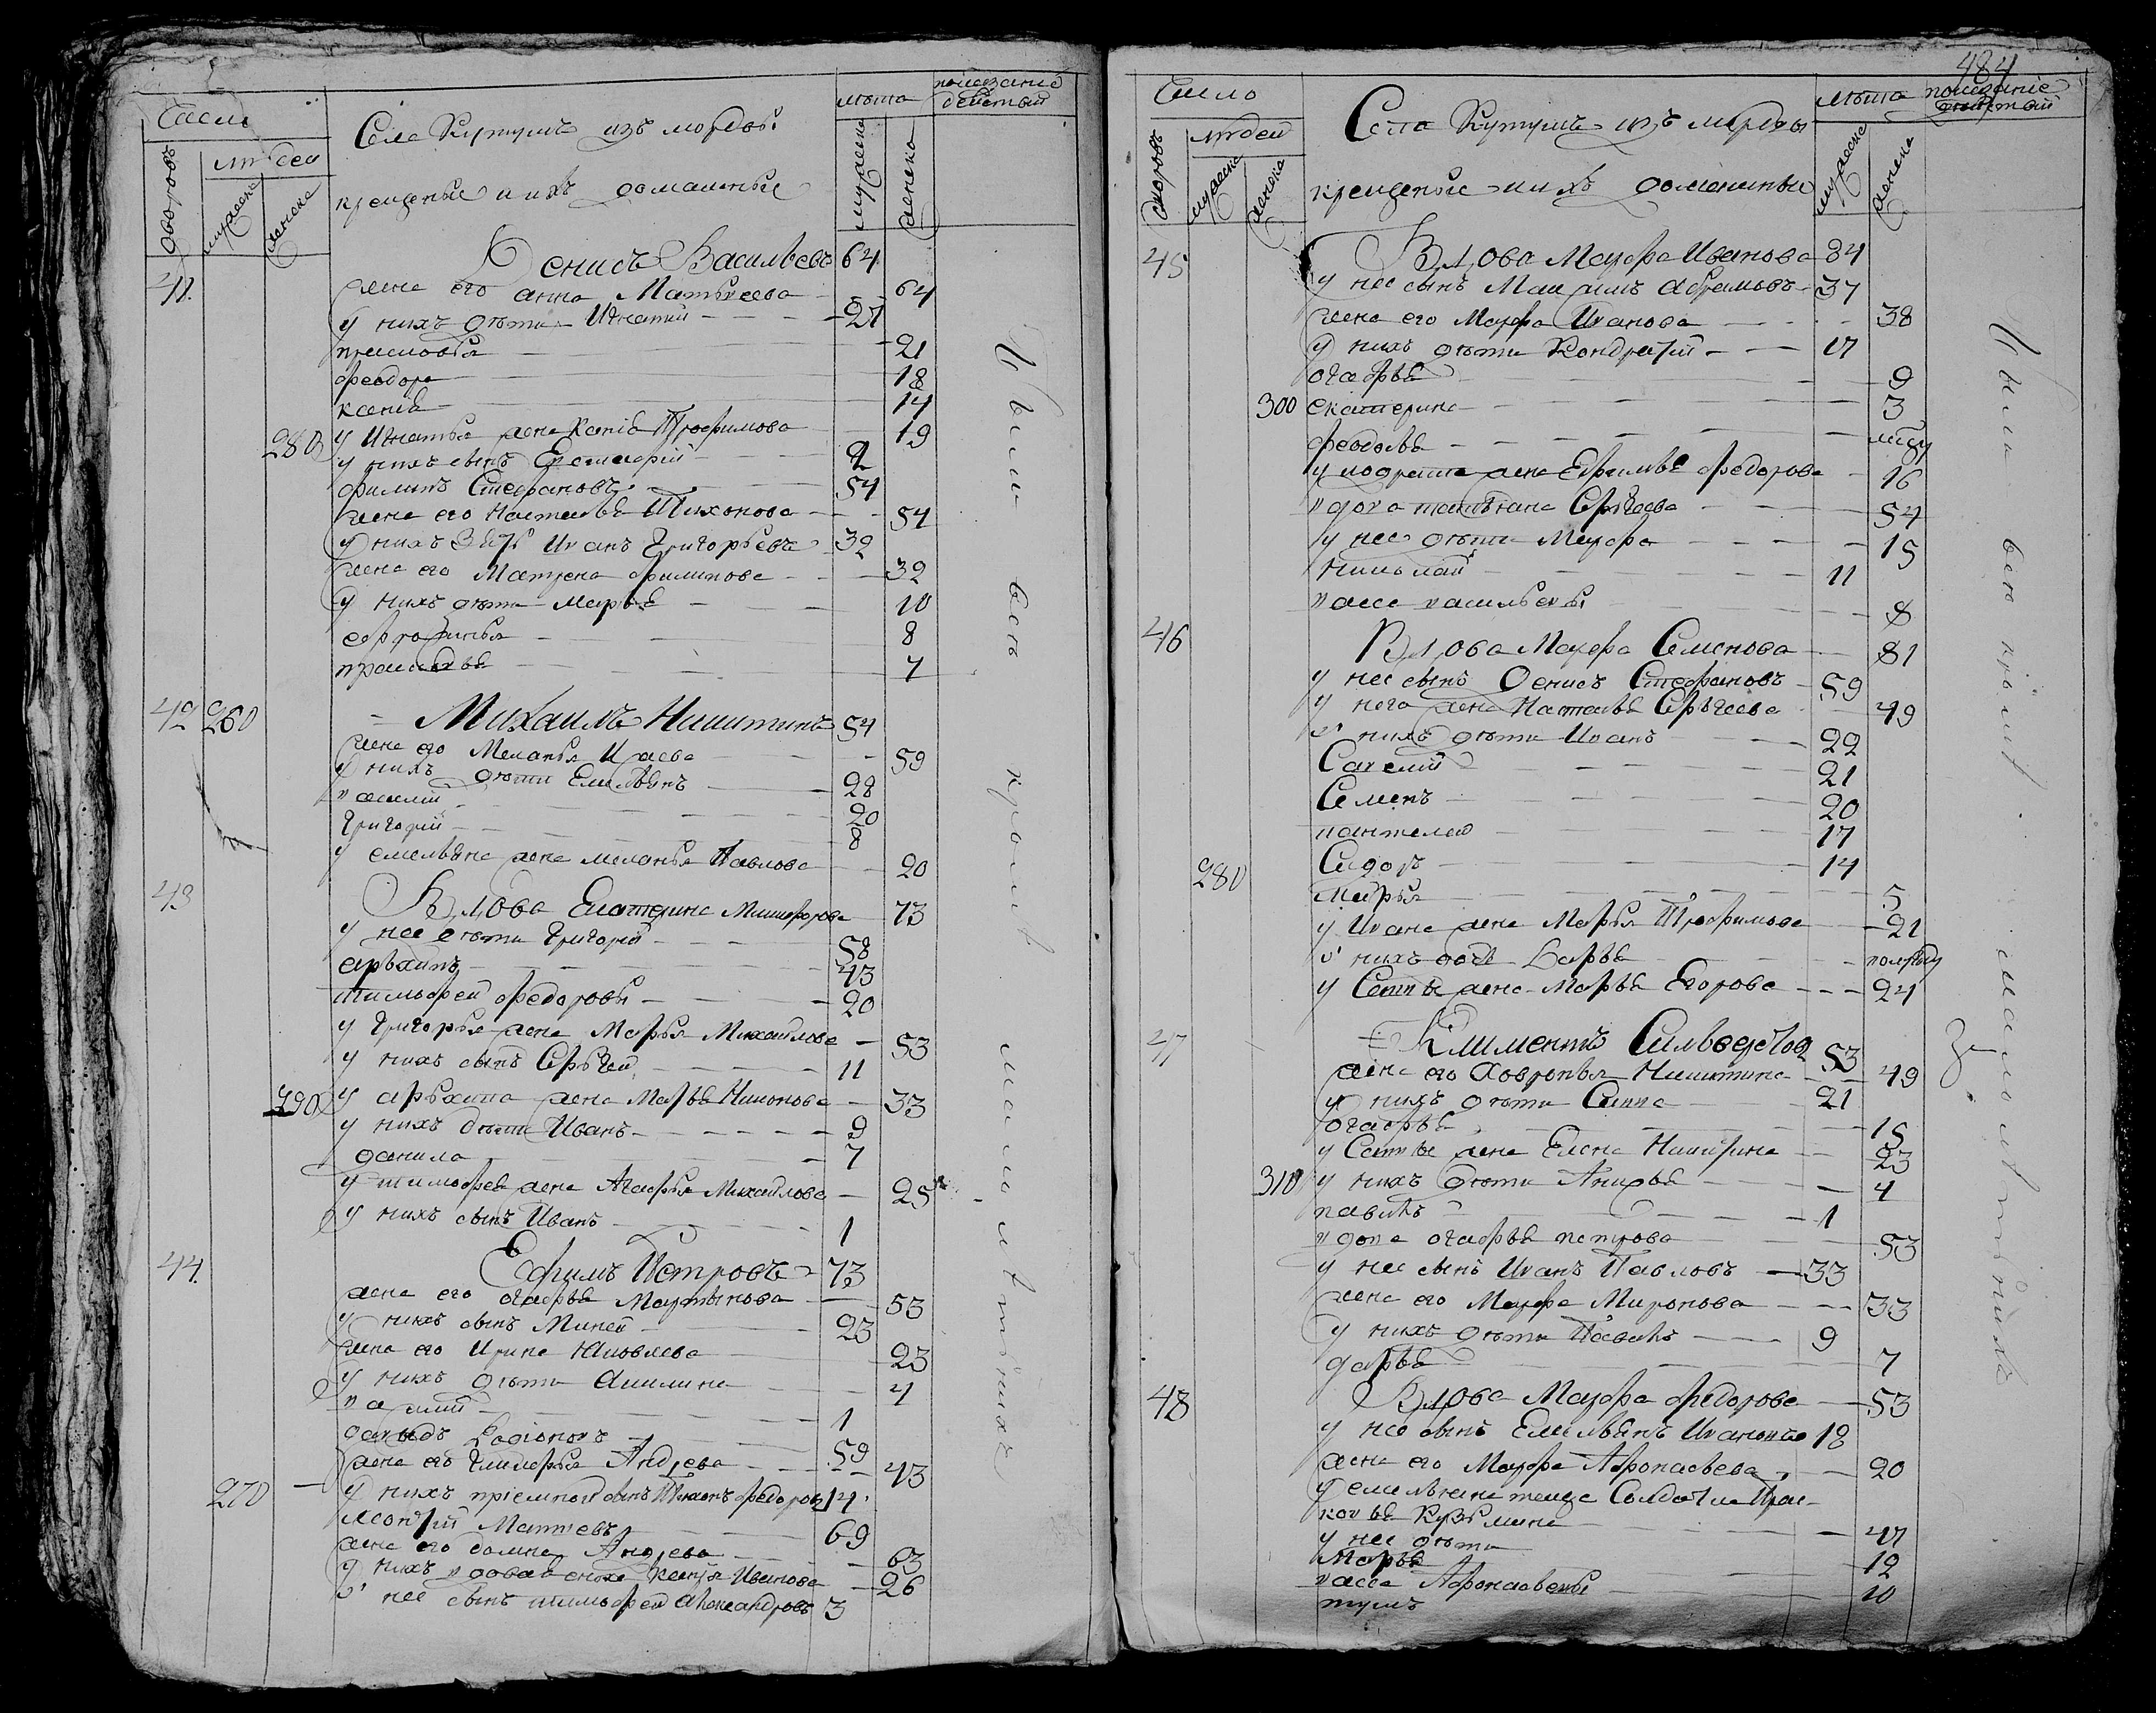 Число
людей
дворовъ
мужеска
женска
Села Кутумъ изъ мордвы
крещеные и ихъ домашные
лѣта
мужеска
женска
показание
действий
41. Денисъ Васильевъ 64
жена его анна Матвеева 64
у нихъ дѣти Игнатий 21
прасковья 21
феодора 18
ксения 14
280 у Игнатья жена Ксения Трофимова 19
у нихъ сынъ Григорий 2
филипъ Стефановъ 54
жена его Наталья Тихонова 54
у нихъ зять Иванъ Григорьевъ 32
жена его Матрена филипова 32
у нихъ дѣти Марья 10
ефросинья 8
прасковья 7
42 260 Михаилъ Никитинъ 54
жена его Меланья Исаева 59
у нихъ дѣти Емельянъ 28
василий 20
Григорий 8
у емельяна жена меланья Павлова 20
43 Вдова Екатерина Никифорова 73
у нее дѣти Григорей 58
архипъ 43
тимофей федоровы 20
у Григорья жена Марья Михайлова 53
у нихъ сынъ Сергей 11
290 у архипа жена Марья Никонова 33
у нихъ дѣти Иванъ 9
данила 7
у тимофея жена Агафья Михайлова 25
у нихъ сынъ Иванъ 1
44. Ефимъ Петровъ 73
жена его агафья Мартынова 53
у нихъ сынъ Миней 23
жена его Ирина Яковлева 23
у нихъ дѣти Акилина 4
василий 1
давыдъ Ларионовъ 59
жена его Гликерья Андреева 43
270 у нихъ приемной сынъ Тихонъ федоровъ 14
леонтий Матвеевъ 69
жена его домна Андреева 63
у нихъ вдовая сноха Ксенья Иванова 26
у нее сынъ тимофей Александровъ 3
Ивси всѣ кромѣ малолѣтнихъ
484
Число
людей
дворовъ
мужеска
женска
Села Кутумъ изъ мордвы
крещеные и ихъ домашные
лѣта
мужеска
женска
показание
действий
45 Вдова Марфа Иванова 84
у нее сынъ Максимъ Абрамовъ 37
жена его Марфа Иванова 38
у нихъ дѣти Кондратий 17
агафья 9
300 екатерина 3
феодосья
у кондратья жена Ефимья федорова 16
вдова татьяна Сергеева 54
у нее дѣти Марфа 15
николай 11
васса васильевы 8
46 Вдова Марфа Семенова 81
у нее сынъ Денисъ Стефановъ 59
у него жена Наталья Сергеева 49
у нихъ дѣти Иванъ 22
Савелий 21
Семенъ 20
пантелей 17
Сидоръ 14
280 Марья 5
у Ивана жена Марья Трофимова 21
у нихъ дочь Дарья полгоду
у Савелья жена Марья Егорова 24
47 Климентъ Сильвестровъ 53
жена его Ховронья Никитина 49
у нихъ дѣти Савва 21
агафья 15
у Саввы жена Елена Никитина 23
310 у нихъ дѣти Анисья 4
павелъ 1
вдова агафья петрова 53
у нее сынъ Иванъ Павловъ 33
жена его Марфа Миронова 33
у нихъ дѣти Павелъ 9
дарья 7
48 Вдова Марфа федорова 53
у нее сынъ Емельянъ Ивановъ 18
жена его Марфа Афонасьева 20
у емельяна теща Солдатка Прас-
ковья Кузьмина 47
у нее дѣти
Марья 12
васса Афонасьевы 10
тумъ
всѣ кромѣ малолѣтнихъ